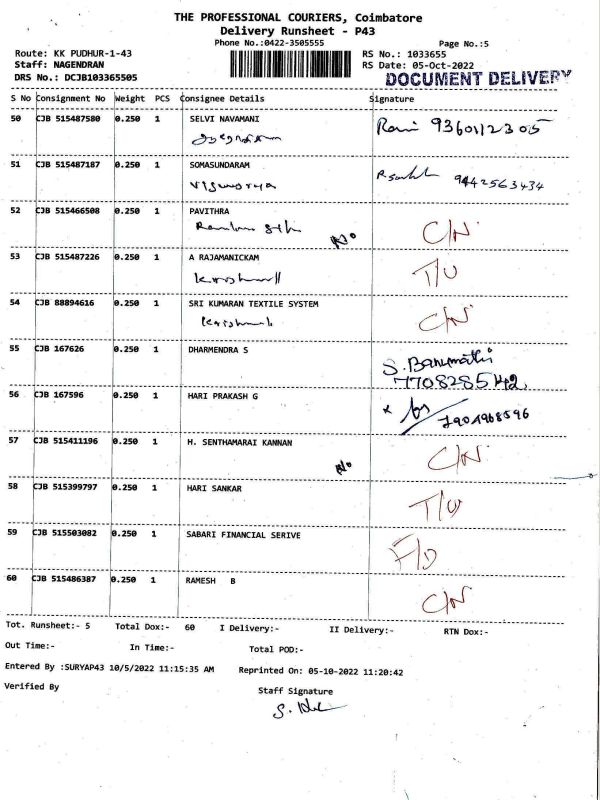 THE PROFESSIONAL COURIERS, Coimbatore
Delivery Runsheet - P43
Phone No.:0422-3505555
Page No.:5
Route: KK PUDHUR-1-43
RS No.: 1033655
Staff: NAGENDRAN
RS Date: 05-Oct-2022
DRS No.: DCJB103365505
DOCUMENT DELIVERY
S No Consignment No Weight PCS Consignee Details Signature
50 CJB 515487580 0.250 1 SELVI NAVAMANI
51 CJB 515487187 0.250 1 SOMASUNDARAM
9442563434
52 CJB 515466508 0.250 1 PAVITHRA
No C/N
53 CJB 515487226 0.250 1 A RAJAMANICKAM
T/U
54 CJB 88894616 0.250 1 SRI KUMARAN TEXTILE SYSTEM
C/N
55 CJB 167626 0.250 1 DHARMENDRA S
S. Banumathi
7708285542
56 CJB 167596 0.250 1 HARI PRAKASH G
7904968596
57 CJB 515411196 0.250 1 H. SENTHAMARAI KANNAN
No C/N
58 CJB 515399797 0.250 1 HARI SANKAR
T/U
59 CJB 515503082 0.250 1 SABARI FINANCIAL SERIVE
60 CJB 515486387 0.250 1 RAMESH B
C/N
Tot. Runsheet:- 5 Total Dox:- 60 I Delivery:- II Delivery:- RTN Dox:-
Out Time:- In Time:- Total POD:-
Entered By :SURYAP43 10/5/2022 11:15:35 AM Reprinted On: 05-10-2022 11:20:42
Verified By Staff Signature